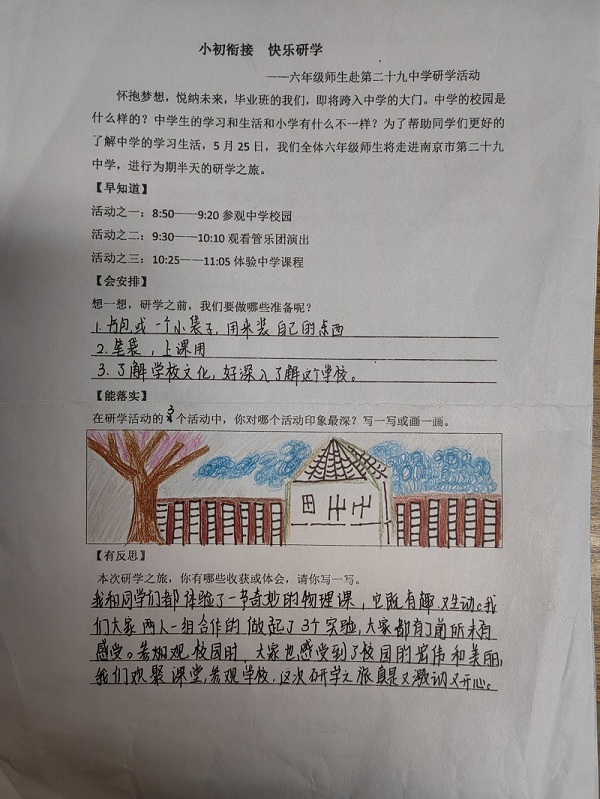 小初衔接　快乐研学
——六年级师生赴第二十九中学研学活动
怀抱梦想，悦纳未来，毕业班的我们，即将跨入中学的大门。中学的校园是
什么样的？中学生的学习和生活和小学有什么不一样？为了帮助同学们更好的
了解中学的学习生活，5 月 25 日，我们全体六年级师生将走进南京市第二十九
中学，进行为期半天的研学之旅。
【早知道】
活动之一：8:50——9:20 参观中学校园
活动之二：9:30——10:10 观看管乐团演出
活动之三：10:25——11:05 体验中学课程
【会安排】
想一想，研学之前，我们要做哪些准备呢？
1. 书包或一个小袋子，用来装自己的东西
2. 笔袋，上课用
3. 了解学校文化，好深入了解这个学校。
【能落实】
在研学活动的3个活动中，你对哪个活动印象最深？写一写或画一画。
【有反思】
本次研学之旅，你有哪些收获或体会，请你写一写。
我和同学们都体验了一节奇妙的物理课，它既有趣又生动。我
们大家两人一组合作的做起了3个实验，大家都有了前所未有
感受。参观校园时，大家也感受到了校园的宏伟和美丽，
我们欢聚课堂，参观学校，这次研学之旅真是又激动又开心。